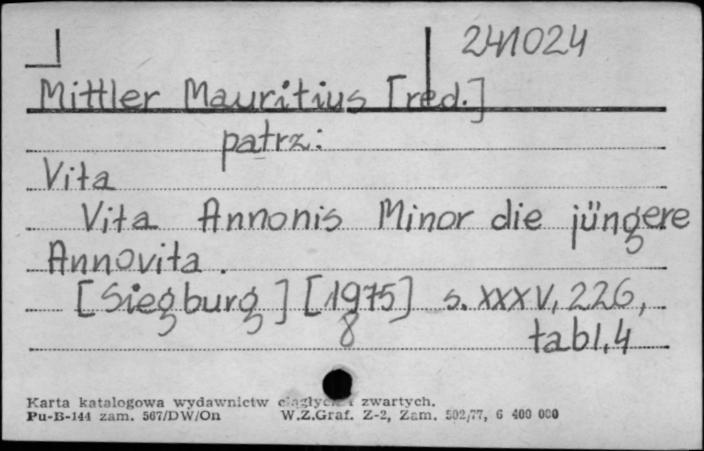 241024
Mittler Mauritius [red.]
patrz:
Vita
Vita Annonis Minor die jüngere
Annovita.
[Siegburg] [1975] s. XXXV, 226,
8 tabl. 4
Karta katalogowa wydawnictw ciągłych i zwartych.
Pu-B-144 zam. 567/DW/On W.Z.Graf. Z-2, Zam. 502/77, 6 400 000